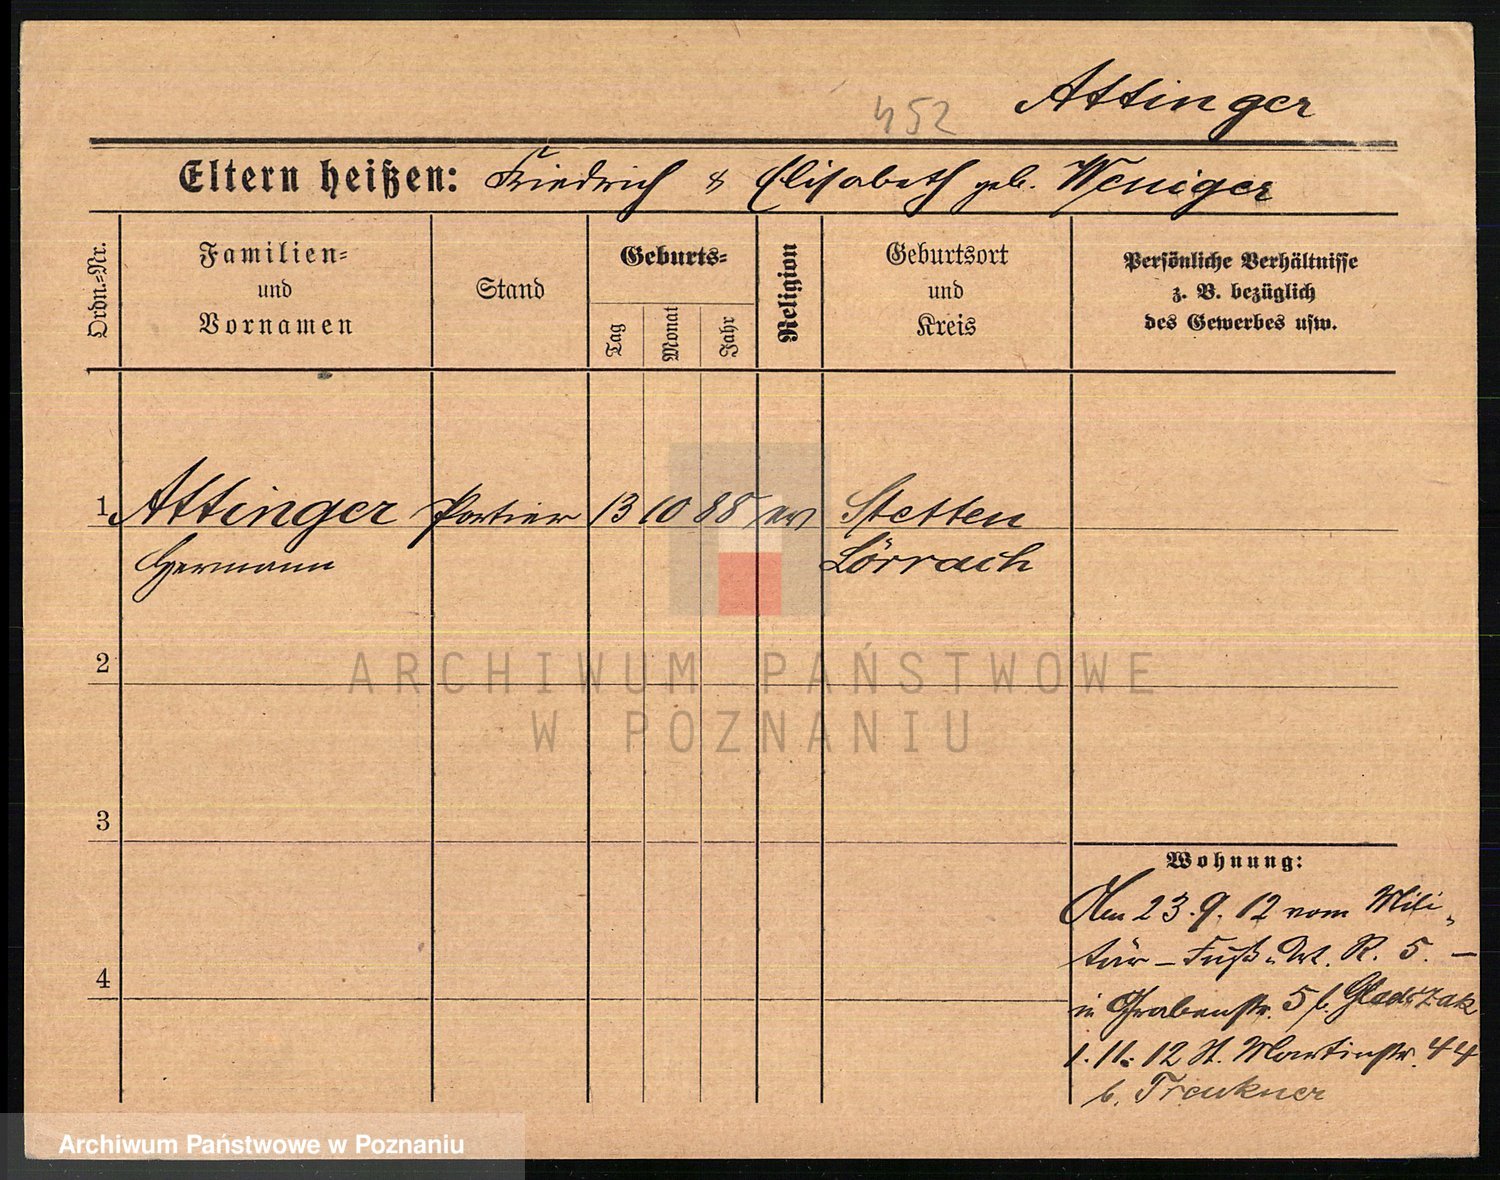 452 Attinger
Eltern heißen: Friedrich & Elisabeth geb. Weniger
Ordn.-Nr.
Familien-
und
Vornamen
Stand
Geburts-
Tag
Monat
Jahr
Religion
Geburtsort
und
Kreis
Persönliche Verhältnisse
z. B. bezüglich
des Gewerbes usw.
1 Attinger Portier 13 10 88 ev Stetten
Hermann Lörrach
2
3
4
Wohnung:
Am 23.9.12 vom Mili-
tär - Fuß-Art. R. 5. -
in Grabenstr. 5 b.
1.11.12 St. Martinstr. 44
b. Treukner
ARCHIWUM PAŃSTWOWE
W POZNANIU
Archiwum Państwowe w Poznaniu